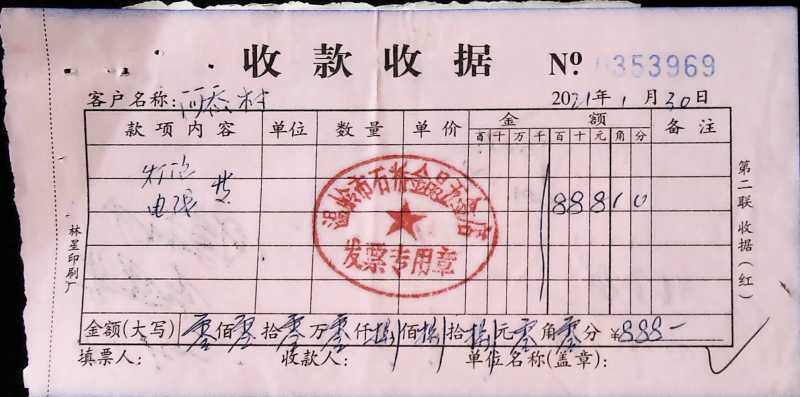 收款收据 No. 0353969
客户名称: 村 2021年1月30日
款项内容 单位 数量 单价 金额 备注
百 十 万 千 百 十 元 角 分
灯泡
电线 888 0 0
温岭市石 金 店
发票专用章
金额(大写) 零佰零拾零万零仟捌佰捌拾捌元零角零分 ¥888-
填票人: 收款人: 单位名称(盖章):
第二联 收据(红)
林星印刷厂